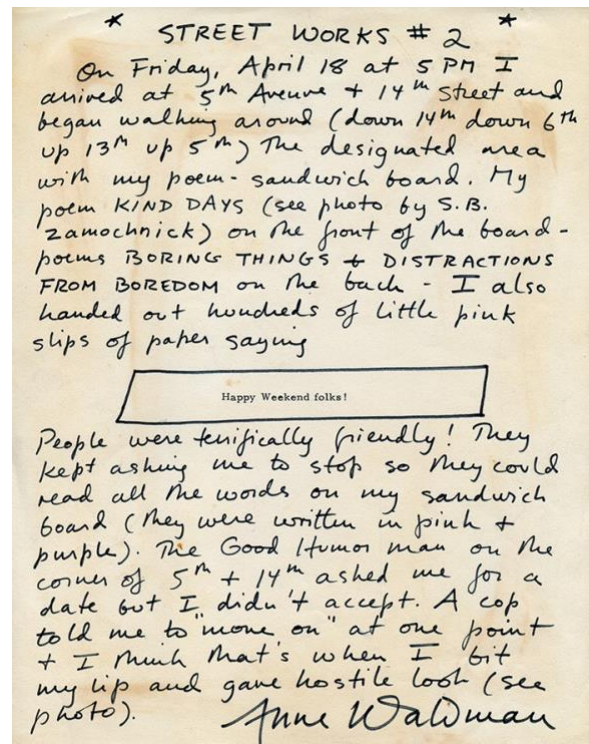 * STREET WORKS # 2 *
On Friday, April 18 at 5 PM I
arrived at 5th Avenue + 14th Street and
began walking around (down 14th down 6th
up 13th up 5th) The designated area
with my poem-sandwich board. My
poem KIND DAYS (see photo by S.B.
Zamochnick) on the front of the board -
poems BORING THINGS + DISTRACTIONS
FROM BOREDOM on the back - I also
handed out hundreds of little pink
slips of paper saying
Happy Weekend folks!
People were terrifically friendly! They
kept asking me to stop so they could
read all the words on my sandwich
board (they were written in pink +
purple). The Good Humor man on the
corner of 5th + 14th asked me for a
date but I didn't accept. A cop
told me to "move on" at one point
+ I think that's when I bit
my lip and gave hostile look (see
photo).
Anne Waldman